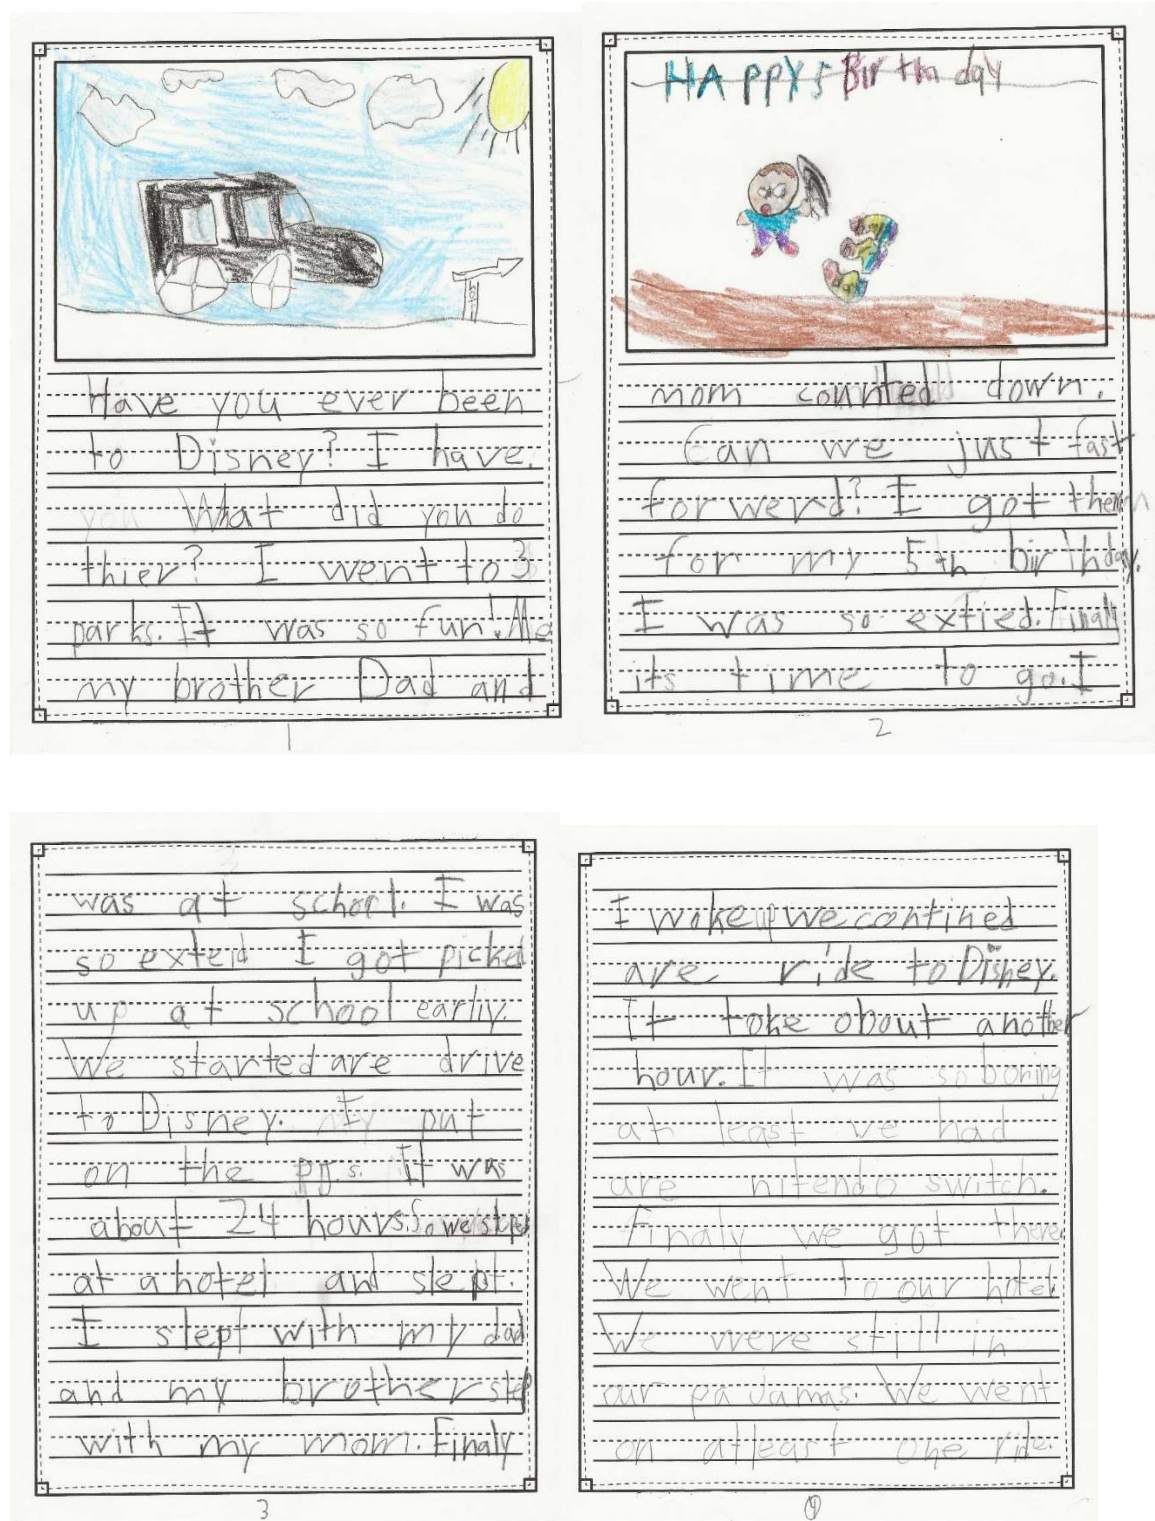 Have you ever been
to Disney? I have.
you What did you do
thier? I went to 3
parks. It was so fun! Me
my brother Dad and
1
HAPPY 5 Birthday
mom counted down.
Can we just fast
forwerd? I got them
for my 5th birthday.
I was so extied. Finaly
its time to go. I
2
was at school. I was
so exteid I got picked
up at school earliy.
We started are drive
to Disney. I put
on the pjs. It was
about 24 hours. So we stoped
at a hotel and slept.
I slept with my dad
and my brother slep
with my mom. Finaly
3
I woke up we contined
are ride to Disney.
It toke about another
hour. It was so boring
at least we had
are nitendo switch.
finaly we got there.
We went to our hotel.
We were still in
our pajamas. We went
on atleast one ride.
4